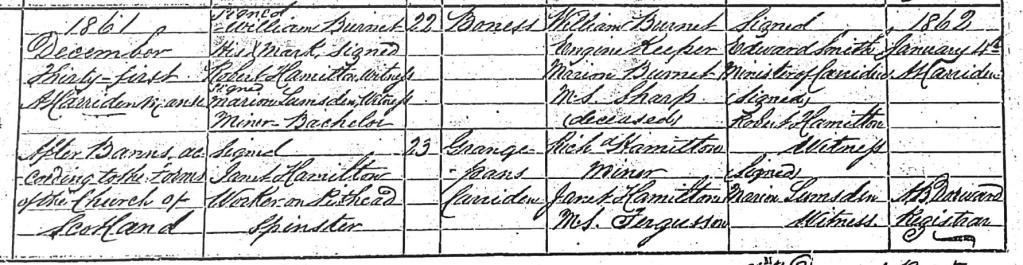 1861
December
Thirty-first
At Carriden Manse
After Banns, ac-
-cording to the forms
of the Church of
Scotland
Signed
William Burnet
His X Mark, Signed
Robert Hamilton, Witness
Signed
Marion Lumsden, Witness
Miner - Bachelor
Signed
Janet Hamilton
Worker on Pithead
Spinster
22
23
Boness
Grange-
-pans
Carriden
William Burnet
Engine Keeper
Marion Burnet
M.S. Sharp
(deceased)
Richd Hamilton
Miner
Janet Hamilton
M.S. Fergusson
Signed
Edward Smith
Minister of Carriden
(signed)
Robert Hamilton
Witness
(Signed)
Marion Lumsden
Witness.
1862
January 4th
At Carriden
Registrar